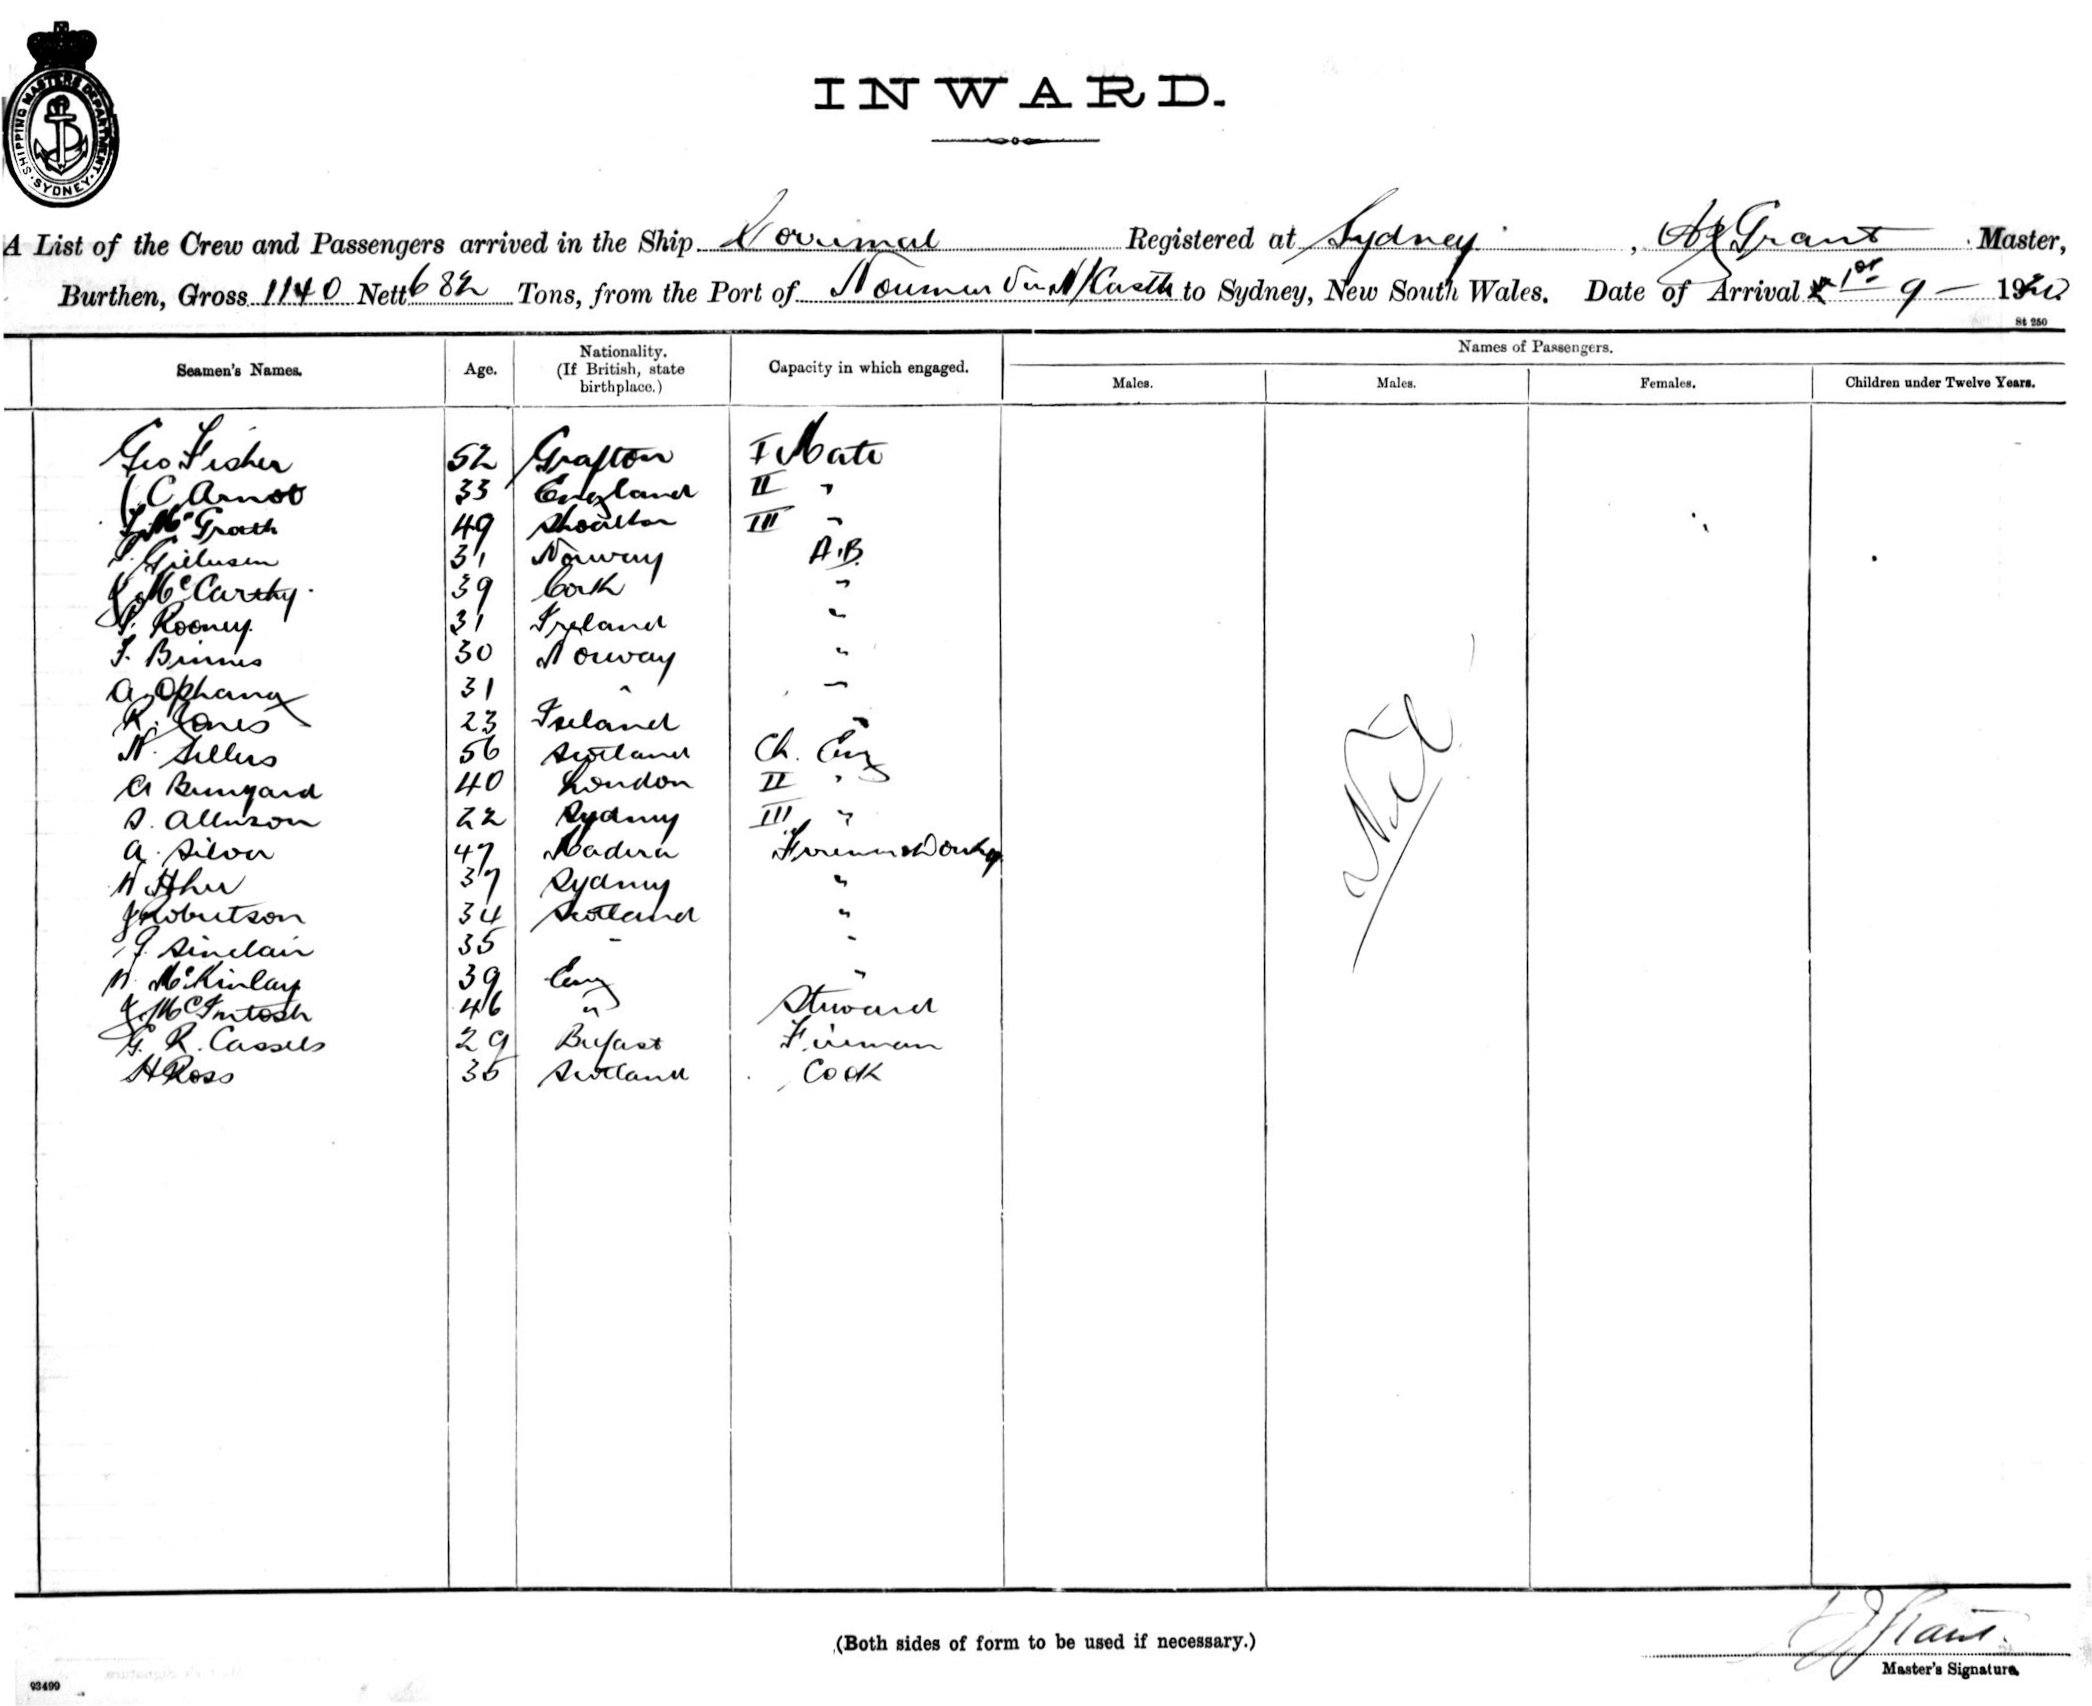 SHIPPING MASTERS DEPARTMENT. SYDNEY.
INWARD.
A List of the Crew and Passengers arrived in the Ship Corrimal Registered at Sydney, Grant Master,
Burthen, Gross 1140 Nett 682 Tons, from the Port of to Sydney, New South Wales. Date of Arrival 1st 9 - 19
St 250
Seamen's Names. Age. Nationality. (If British, state birthplace.) Capacity in which engaged. Names of Passengers.
Males. Males. Females. Children under Twelve Years.
Geo Fisher 52 Grafton I Mate
C Arnot 33 England II "
McGrath 49 III "
31 Norway A.B.
McCarthy 39 Cork "
Rooney 31 Ireland "
30 Norway "
31 " "
R. Jones 23 Ireland "
Sellers 56 Scotland Ch. Eng
40 London II "
S. Allinson 22 Sydney III "
A. Silva 47 Firemen & Donkey
37 Sydney "
J Robertson 34 Scotland "
Sinclair 35 " "
McKinlay 39 Eng "
J. McIntosh 46 " Steward
G. R. Cassels 29 Belfast Fireman
H Ross 35 Scotland Cook
Nil
(Both sides of form to be used if necessary.)
Grant
Master's Signature
93499